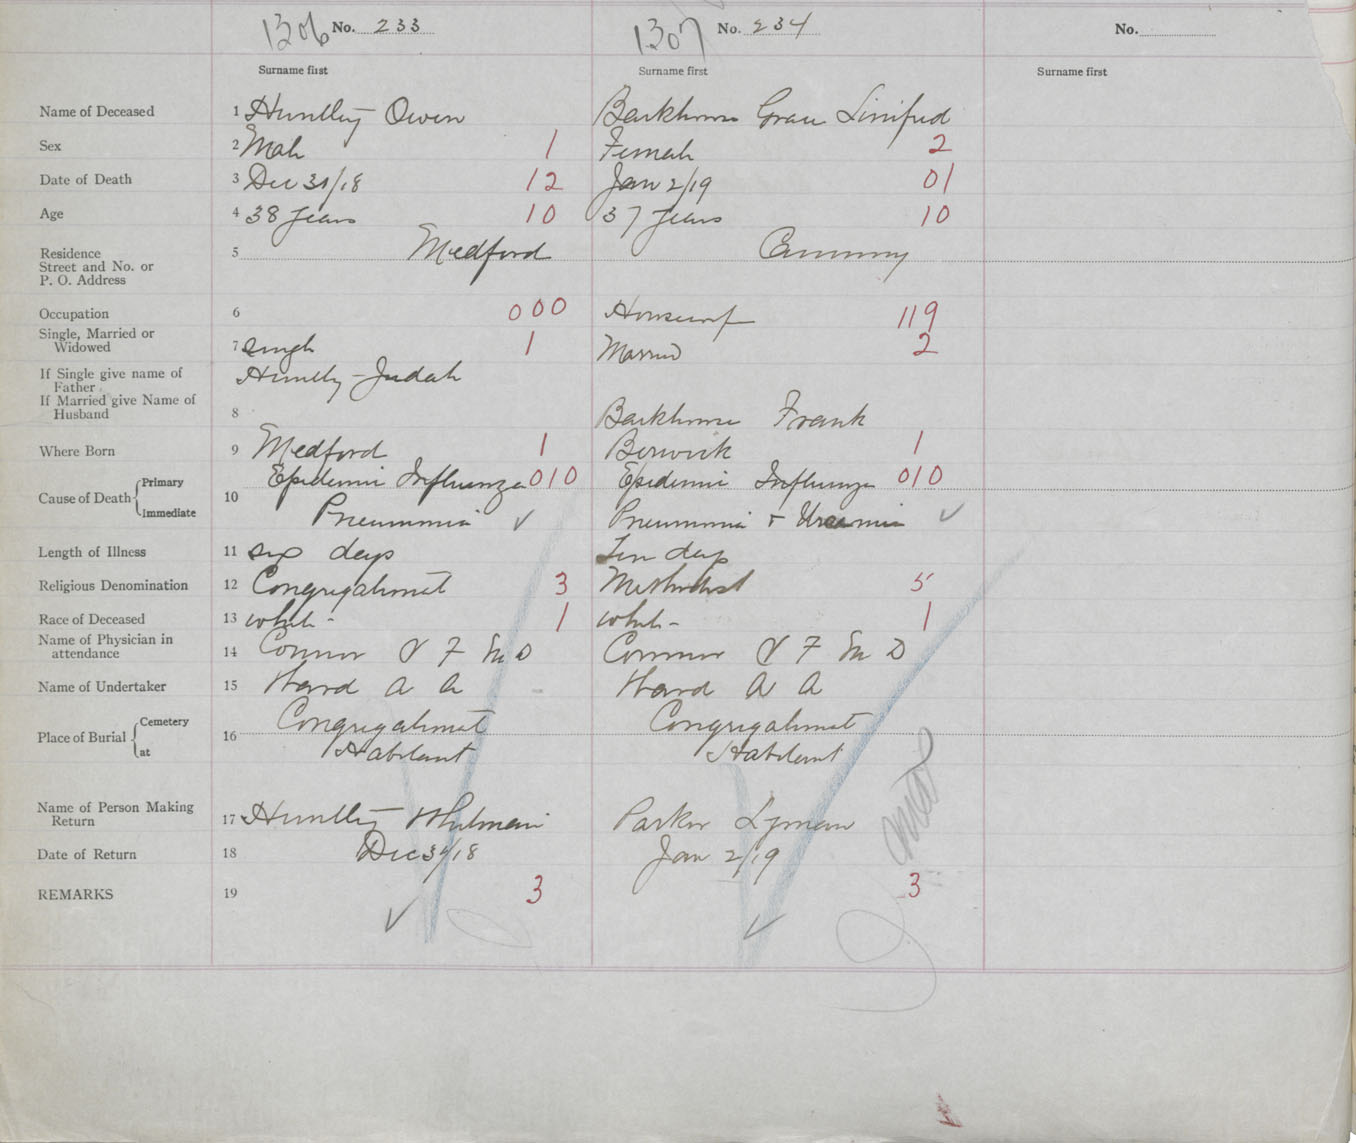 1306 No. 233 1307 No. 234 No.
Surname first Surname first Surname first
Name of Deceased 1 Huntley Owen Barkhouse Grace Linifred
Sex 2 Male 1 Female 2
Date of Death 3 Dec 30/18 12 Jan 2/19 01
Age 4 38 years 10 37 years 10
Residence 5 Medford Canning
Street and No. or
P. O. Address
Occupation 6 000 Housewife 119
Single, Married or
Widowed 7 single 1 Married 2
If Single give name of Huntley Judah
Father
If Married give Name of
Husband 8 Barkhouse Frank
Where Born 9 Medford 1 Berwick 1
Cause of Death Primary Epidemic Influenza 010 Epidemic Influenza 010
10
Immediate Pneumonia Pneumonia + Uraemia
Length of Illness 11 six days Ten days
Religious Denomination 12 Congregationalist 3 Methodist 5
Race of Deceased 13 white 1 white 1
Name of Physician in
attendance 14 Connor F M D Connor F M D
Name of Undertaker 15 Ward A A Ward A A
Place of Burial Cemetery 16 Congregationalist Congregationalist
at Habitant Habitant
Name of Person Making
Return 17 Huntley Whitman Parker Lyman
Date of Return 18 Dec 30/18 Jan 2/19
REMARKS 19 3 3